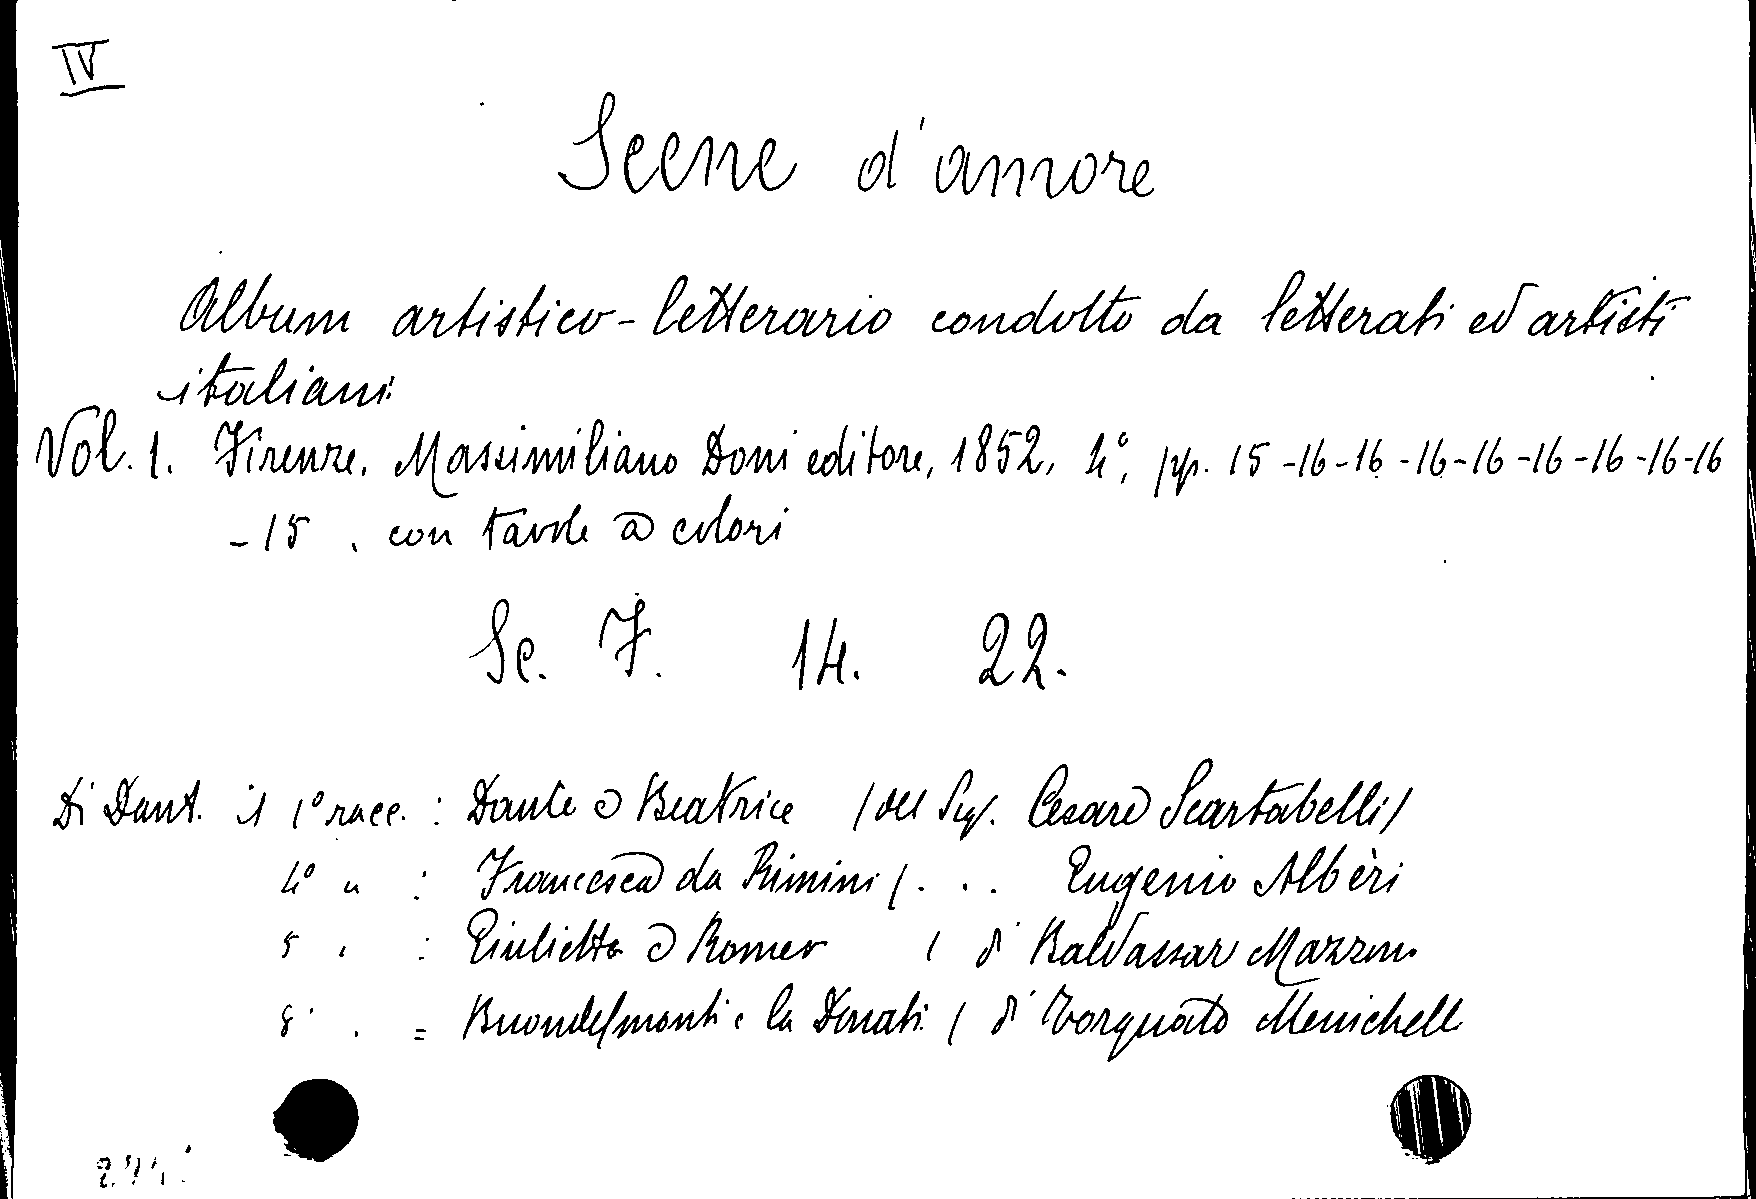 IV
Scene d'amore
Album artistico-letterario condotto da letterati ed artisti
italiani
Vol. 1. Firenze. Massimiliano Doni editore, 1852, 4°, pp. 15-16-16-16-16-16-16-16-16
-15. con tavole a colori
Sc. F. 14. 22.
Di Dant. il 1° racc. : Dante e Beatrice (del Sig. Cesare Scartabelli)
4° " : Francesca da Rimini ( . . . Eugenio Albèri
5 " : Giulietta e Romeo ( di Baldassar Mazzoni
8° . = Buondelmonti e la Donati ( di Torquato Menichelli